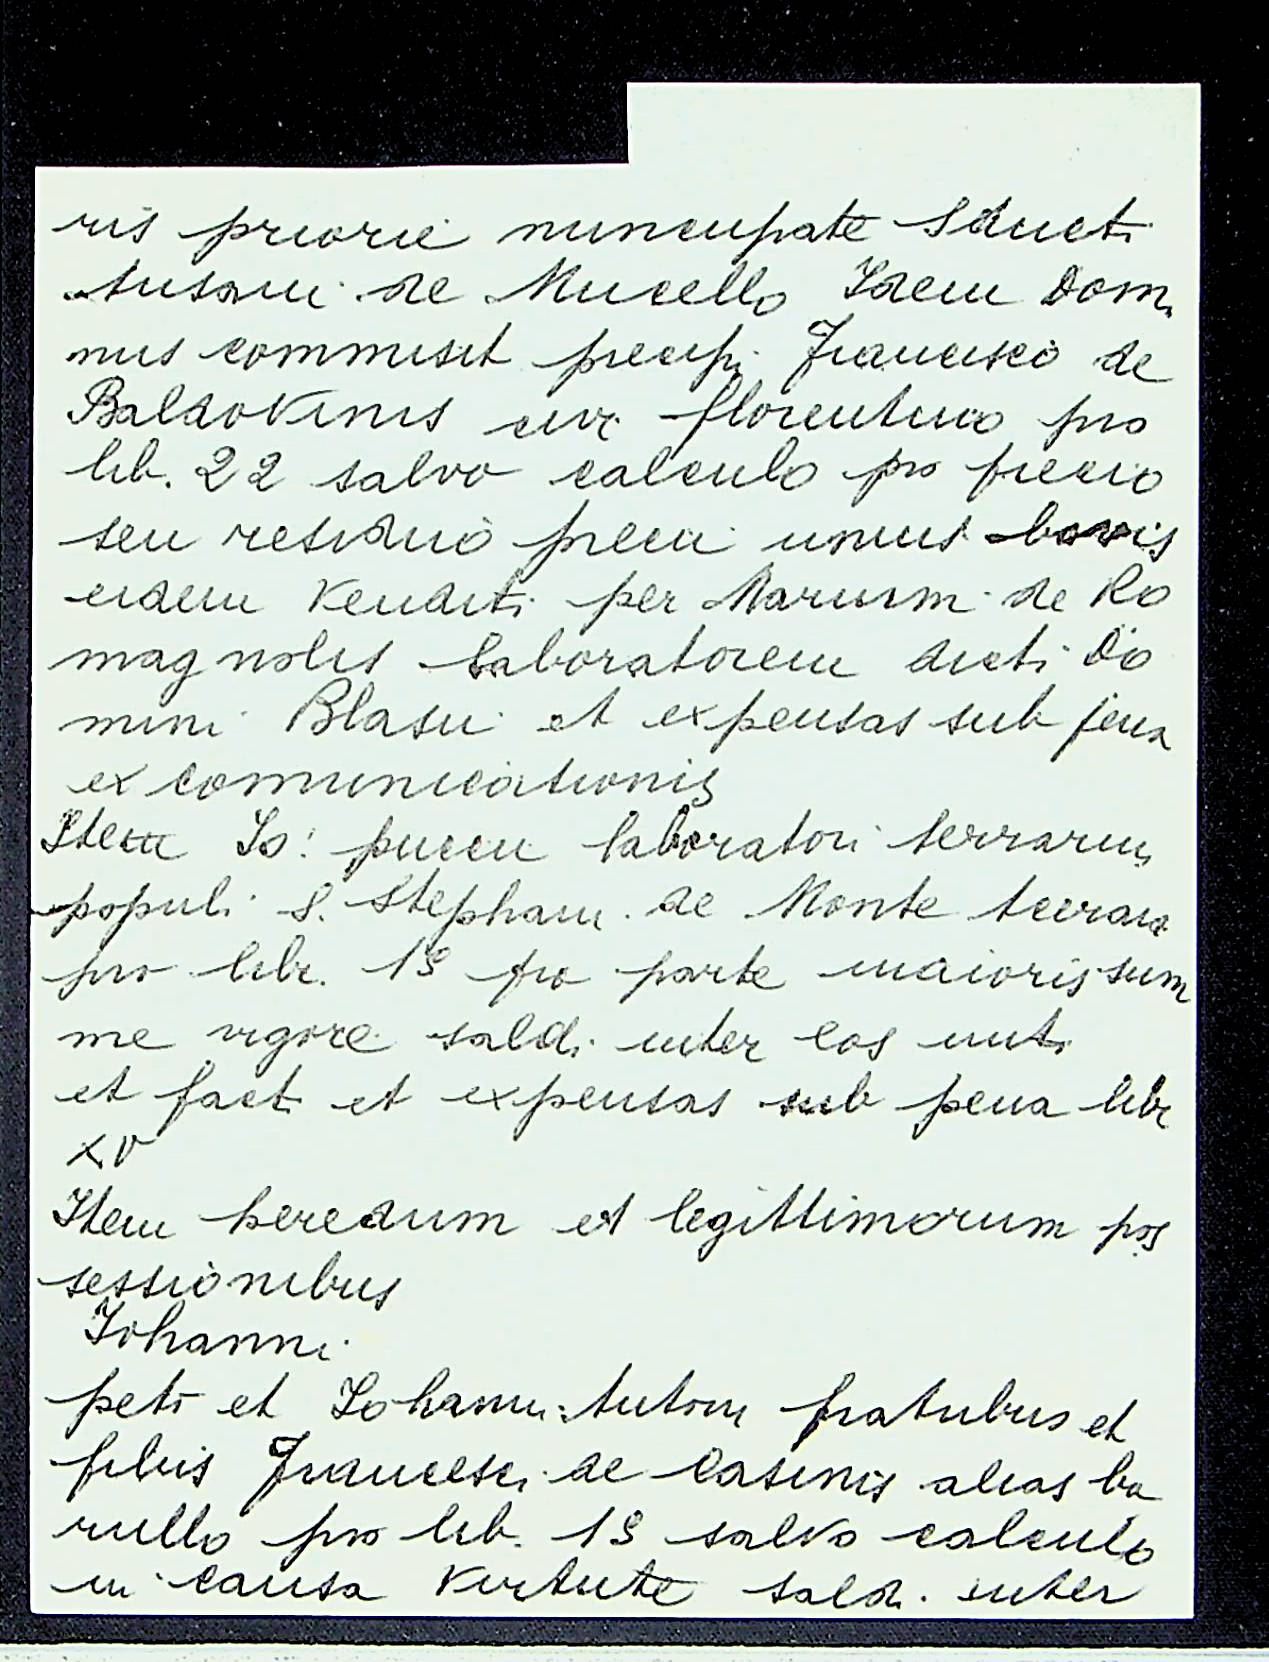 ris priorie nuncupate Sancti
susani de Mucello Idem Dom
nus commisit precipi Francisco de
Baldovinis civi florentino pro
lib. 22 salvo calculo pro precio
seu residuo precii unius bovis
eidem venditi per Marium de Ro
magnolis laboratorem dicti Do
mini Blasii et expensas sub pena
excomunicationis
Item Io: puccii laboratori terrarum
populi S. Stephani de Monte
pro libr. 13 pro parte maioris sum
me vigore saldi inter eos initi
et facti et expensas sub pena libr
XV
Item heredum et legittimorum pos
sessionibus
Iohanni
petri et Iohanni fratribus et
filiis Francesci de Casinis alias bu
rullo pro lib. 13 salvo calculo
in causa virtute saldi inter